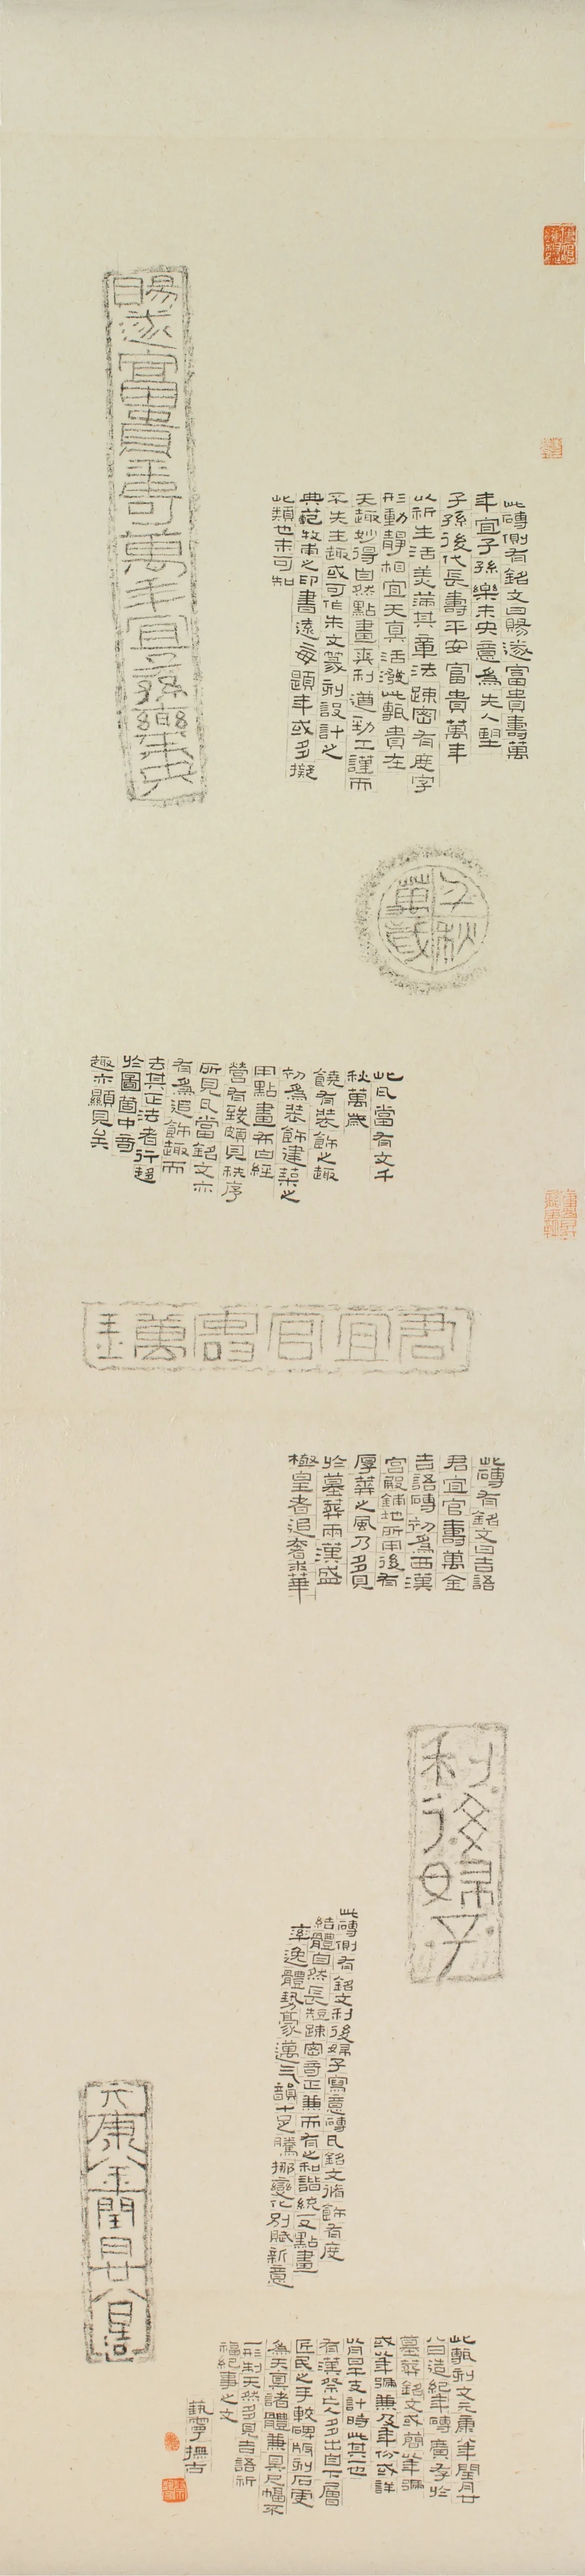 賜遂富貴壽萬年宜子孫樂未央
此磚側有銘文曰賜遂富貴壽萬
年宜子孫樂未央意為先人堅
子孫後代長壽平安富貴萬年
以祈生活美滿其章法疎密有度字
形動靜相宜天真活潑此甎貴在
天趣妙得自然點畫爽利遒勁工謹而
不失生趣或可作朱文篆刻設計之
典範牧甫之印書遠每題年或多擬
此類也未可知
千秋萬歲
此瓦當有文千
秋萬歲
饒有裝飾之趣
初為裝飾建築之
用點畫布白經
營有致頗見秩序
所見瓦當銘文亦
有為追飾趣而
去其正法者行趨
於圖箇中奇
趣亦顯見矣
君宜官壽萬金
此磚有銘文曰吉語
君宜官壽萬金
吉語磚初為西漢
宮殿鋪地所用後有
厚葬之風乃多見
於墓葬兩漢盛
極皇者追奢求華
利後婦子
此磚側有銘文利後婦子寫意磚瓦銘文脩飾有度
結體自然長短疎密奇正兼而有之和諧統一點畫
率逸體勢豪邁氣韻十足騰挪變化別賦新意
元康八年閏月廿八日造
此甎刻文元康八年閏月廿
八日造紀年磚廣存於
墓葬銘文或簡年號
或年號兼及年份或詳
以干支計時此其一也
有漢祭亡人多出自下層
匠民之手較碑版刻石更
為天真諸體兼具尺幅不
一形制天然多見吉語祈
福紀事之文
撫古